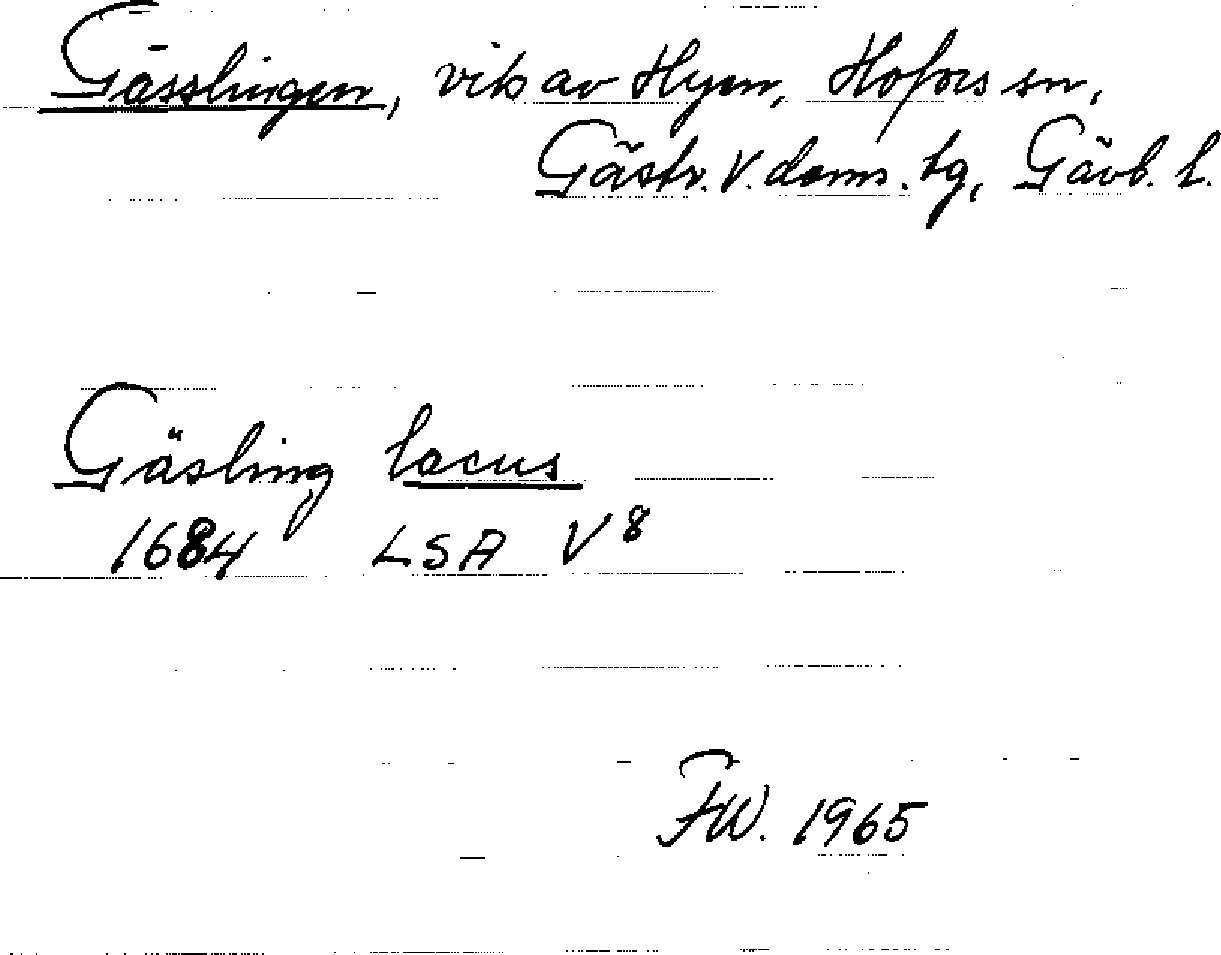 Gässlingen, vik av Hyen, Hofors sn,
Gästr. V. doms. tg, Gävb. l.
Gäsling lacus
1684 LSA V 8
FW. 1965